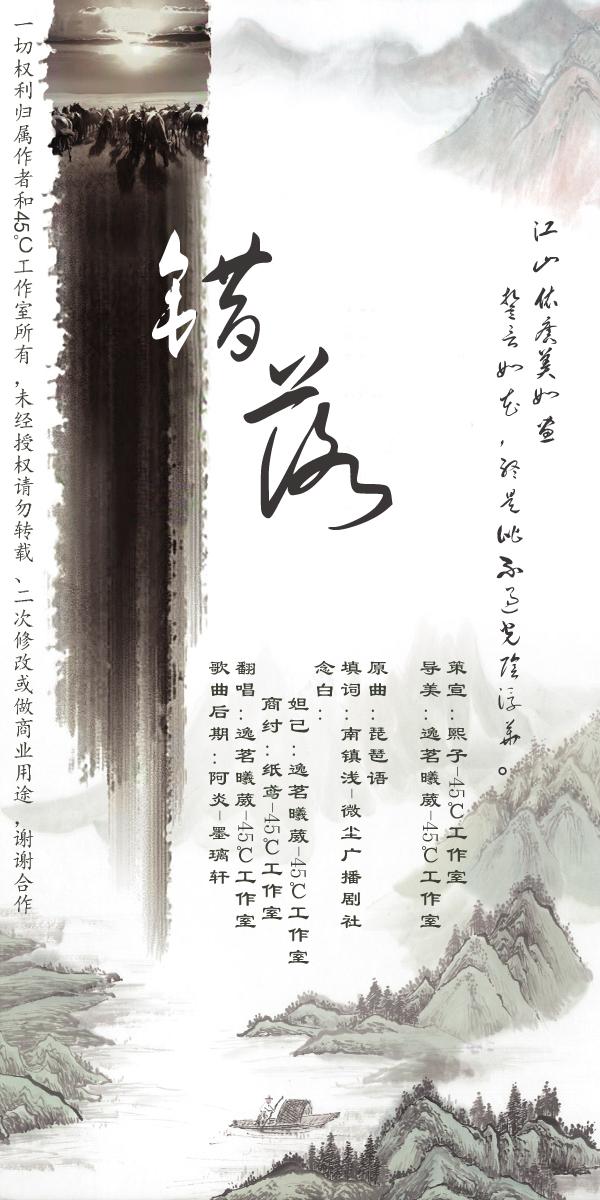 江山依旧美如画
誓言如花，终是逃不过光阴浮华。
错落
策宣：熙子-45℃工作室
导美：逸茗曦葳-45℃工作室
原曲：琵琶语
填词：南镇浅-微尘广播剧社
念白：
妲己：逸茗曦葳-45℃工作室
商纣：纸鸢-45℃工作室
翻唱：逸茗曦葳-45℃工作室
歌曲后期：阿炎-墨璃轩
一切权利归属作者和45℃工作室所有，未经授权请勿转载、二次修改或做商业用途，谢谢合作